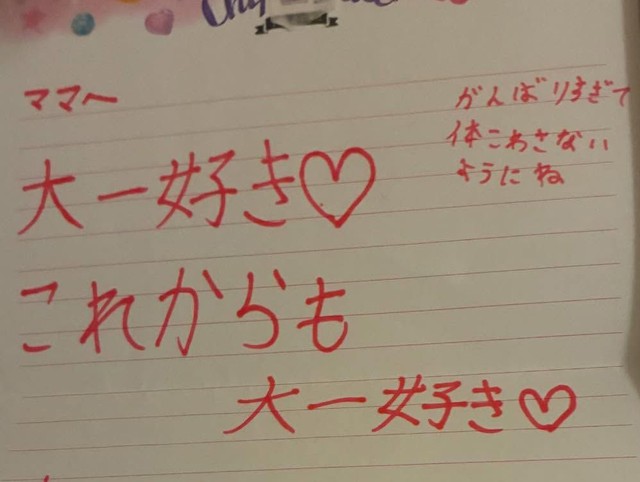 ママへ
大一好き♡
これからも
大一好き♡
がんばりすぎて
体こわさない
ようにね